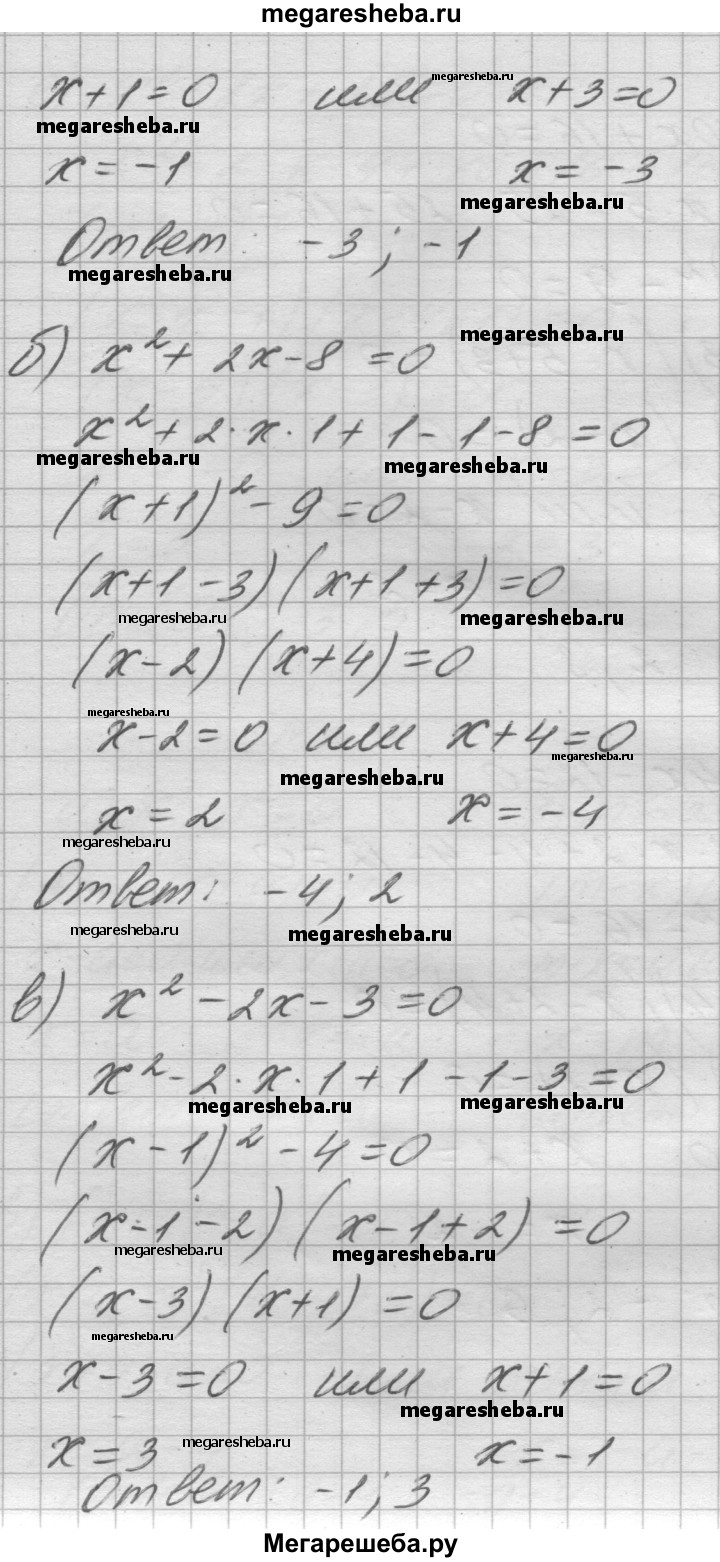 megaresheba.ru
x+1=0 или x+3=0
megaresheba.ru
megaresheba.ru
x=-1 x=-3
megaresheba.ru
Ответ: -3; -1
megaresheba.ru
megaresheba.ru
б) x²+2x-8=0
x²+2·x·1+1-1-8=0
megaresheba.ru megaresheba.ru
(x+1)²-9=0
(x+1-3)(x+1+3)=0
megaresheba.ru megaresheba.ru
(x-2)(x+4)=0
megaresheba.ru
x-2=0 или x+4=0
megaresheba.ru
megaresheba.ru
x=2 x=-4
megaresheba.ru
Ответ: -4; 2
megaresheba.ru megaresheba.ru
в) x²-2x-3=0
x²-2·x·1+1-1-3=0
megaresheba.ru megaresheba.ru
(x-1)²-4=0
(x-1-2)(x-1+2)=0
megaresheba.ru megaresheba.ru
(x-3)(x+1)=0
megaresheba.ru
x-3=0 или x+1=0
megaresheba.ru
x=3 megaresheba.ru x=-1
Ответ: -1; 3
Мегарешеба.ру